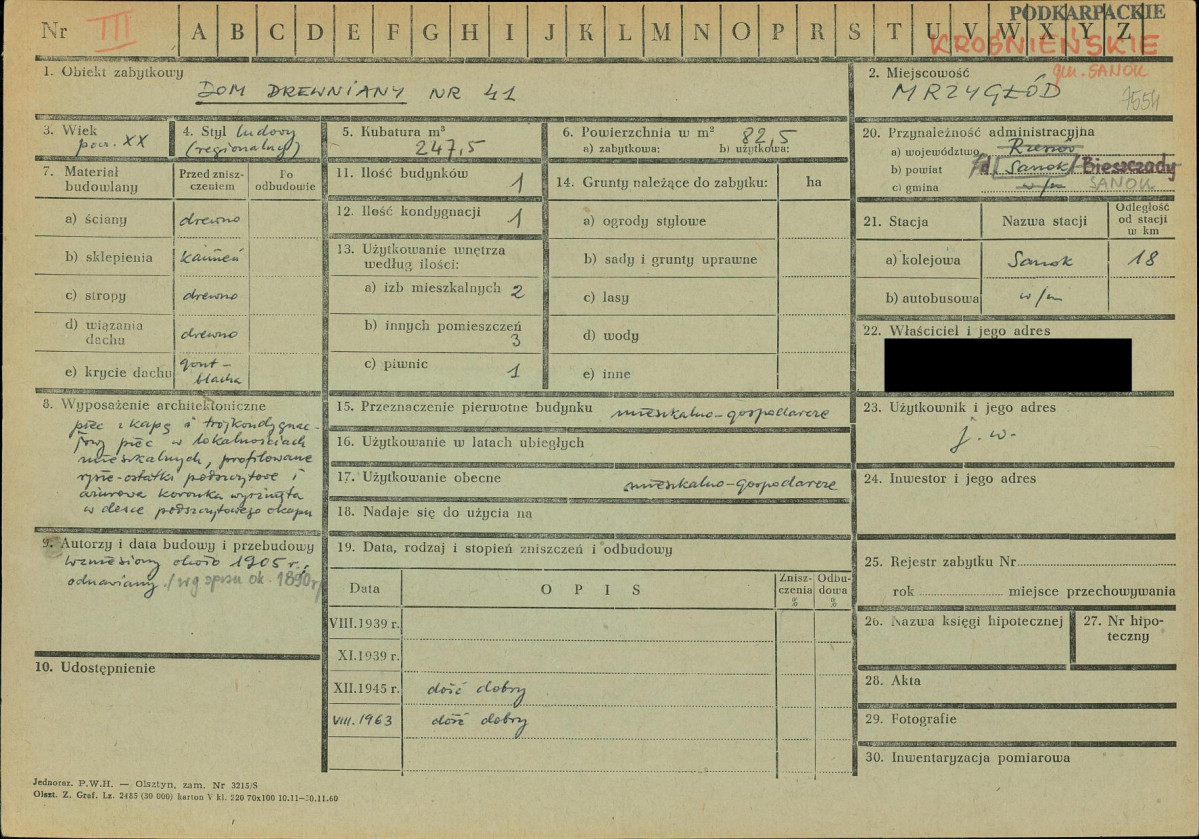 Nr III A B C D E F G H I J K L M N O P R S T U V W X Y Z
PODKARPACKIE
KROŚNIEŃSKIE
gm. SANOK
1. Obiekt zabytkowy
DOM DREWNIANY NR 41
2. Miejscowość
MRZYGŁÓD
7554
3. Wiek
pocz. XX
4. Styl ludowy
(regionalny)
5. Kubatura m³
247,5
6. Powierzchnia w m²
82,5
a) zabytkowa: b) użytkowa:
20. Przynależność administracyjna
a) województwo Rzeszów
b) powiat Sanok / Bieszczady
c) gmina w/m SANOK
7. Materiał budowlany
Przed zniszczeniem
Po odbudowie
a) ściany drewno
b) sklepienia kamień
c) stropy drewno
d) wiązania dachu drewno
e) krycie dachu gont-blacha
11. Ilość budynków 1
12. Ilość kondygnacji 1
13. Użytkowanie wnętrza
według ilości:
a) izb mieszkalnych 2
b) innych pomieszczeń
3
c) piwnic 1
14. Grunty należące do zabytku: ha
a) ogrody stylowe
b) sady i grunty uprawne
c) lasy
d) wody
e) inne
21. Stacja Nazwa stacji Odległość od stacji w km
a) kolejowa Sanok 18
b) autobusowa w/m
22. Właściciel i jego adres
8. Wyposażenie architektoniczne
piec z kapą i trójkondygnac-
jowy piec w lokalnościach
mieszkalnych, profilowane
rysie-ostatki podszczytowe i
ażurowa koronka wyrżnięta
w desce podszczytowego okapu
15. Przeznaczenie pierwotne budynku mieszkalno-gospodarcze
16. Użytkowanie w latach ubiegłych
17. Użytkowanie obecne mieszkalno-gospodarcze
18. Nadaje się do użycia na
23. Użytkownik i jego adres
j. w.
24. Inwestor i jego adres
9. Autorzy i data budowy i przebudowy
wzniesiony około 1905 r.,
odnawiany /wg spisu ok. 1890 r/
10. Udostępnienie
19. Data, rodzaj i stopień zniszczeń i odbudowy
Data O P I S Zniszczenia % Odbudowa %
VIII.1939 r.
XI.1939 r.
XII.1945 r. dość dobry
VIII.1963 dość dobry
25. Rejestr zabytku Nr
rok miejsce przechowywania
26. Nazwa księgi hipotecznej
27. Nr hipoteczny
28. Akta
29. Fotografie
30. Inwentaryzacja pomiarowa
Jednoraz. P.W.H. — Olsztyn, zam. Nr 3215/S
Olszt. Z. Graf. Lz. 2485 (30 000) karton V kl. 220 70x100 10.11—30.11.60